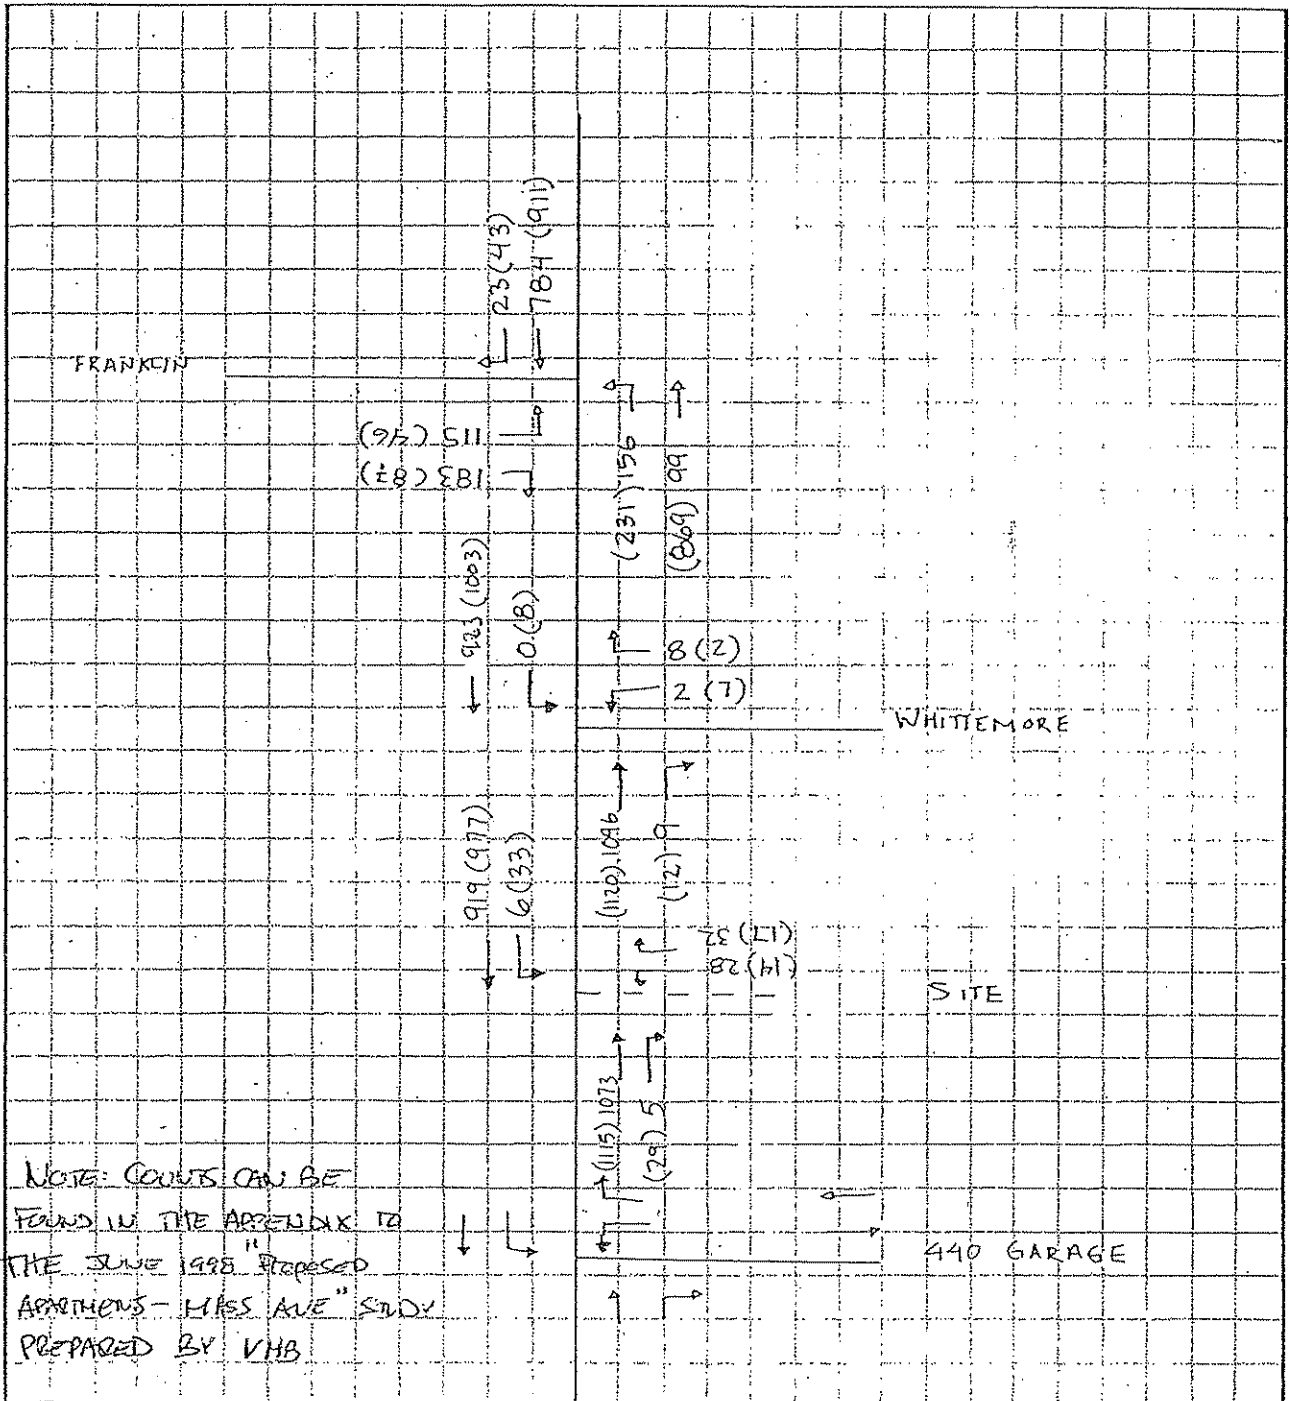 23 (43)
784 (911)
FRANKLIN
115 (46)
183 (87)
(231) 156
(869) 99
923 (1003)
0 (8)
8 (2)
2 (7)
WHITTEMORE
919 (977)
6 (33)
(1120) 1096
(12) 9
(17) 32
(14) 28
SITE
(1115) 1073
(29) 5
440 GARAGE
NOTE: COUNTS CAN BE
FOUND IN THE APPENDIX TO
THE JUNE 1998 "PROPOSED
APARTMENS - MASS AVE" STUDY
PREPARED BY VHB